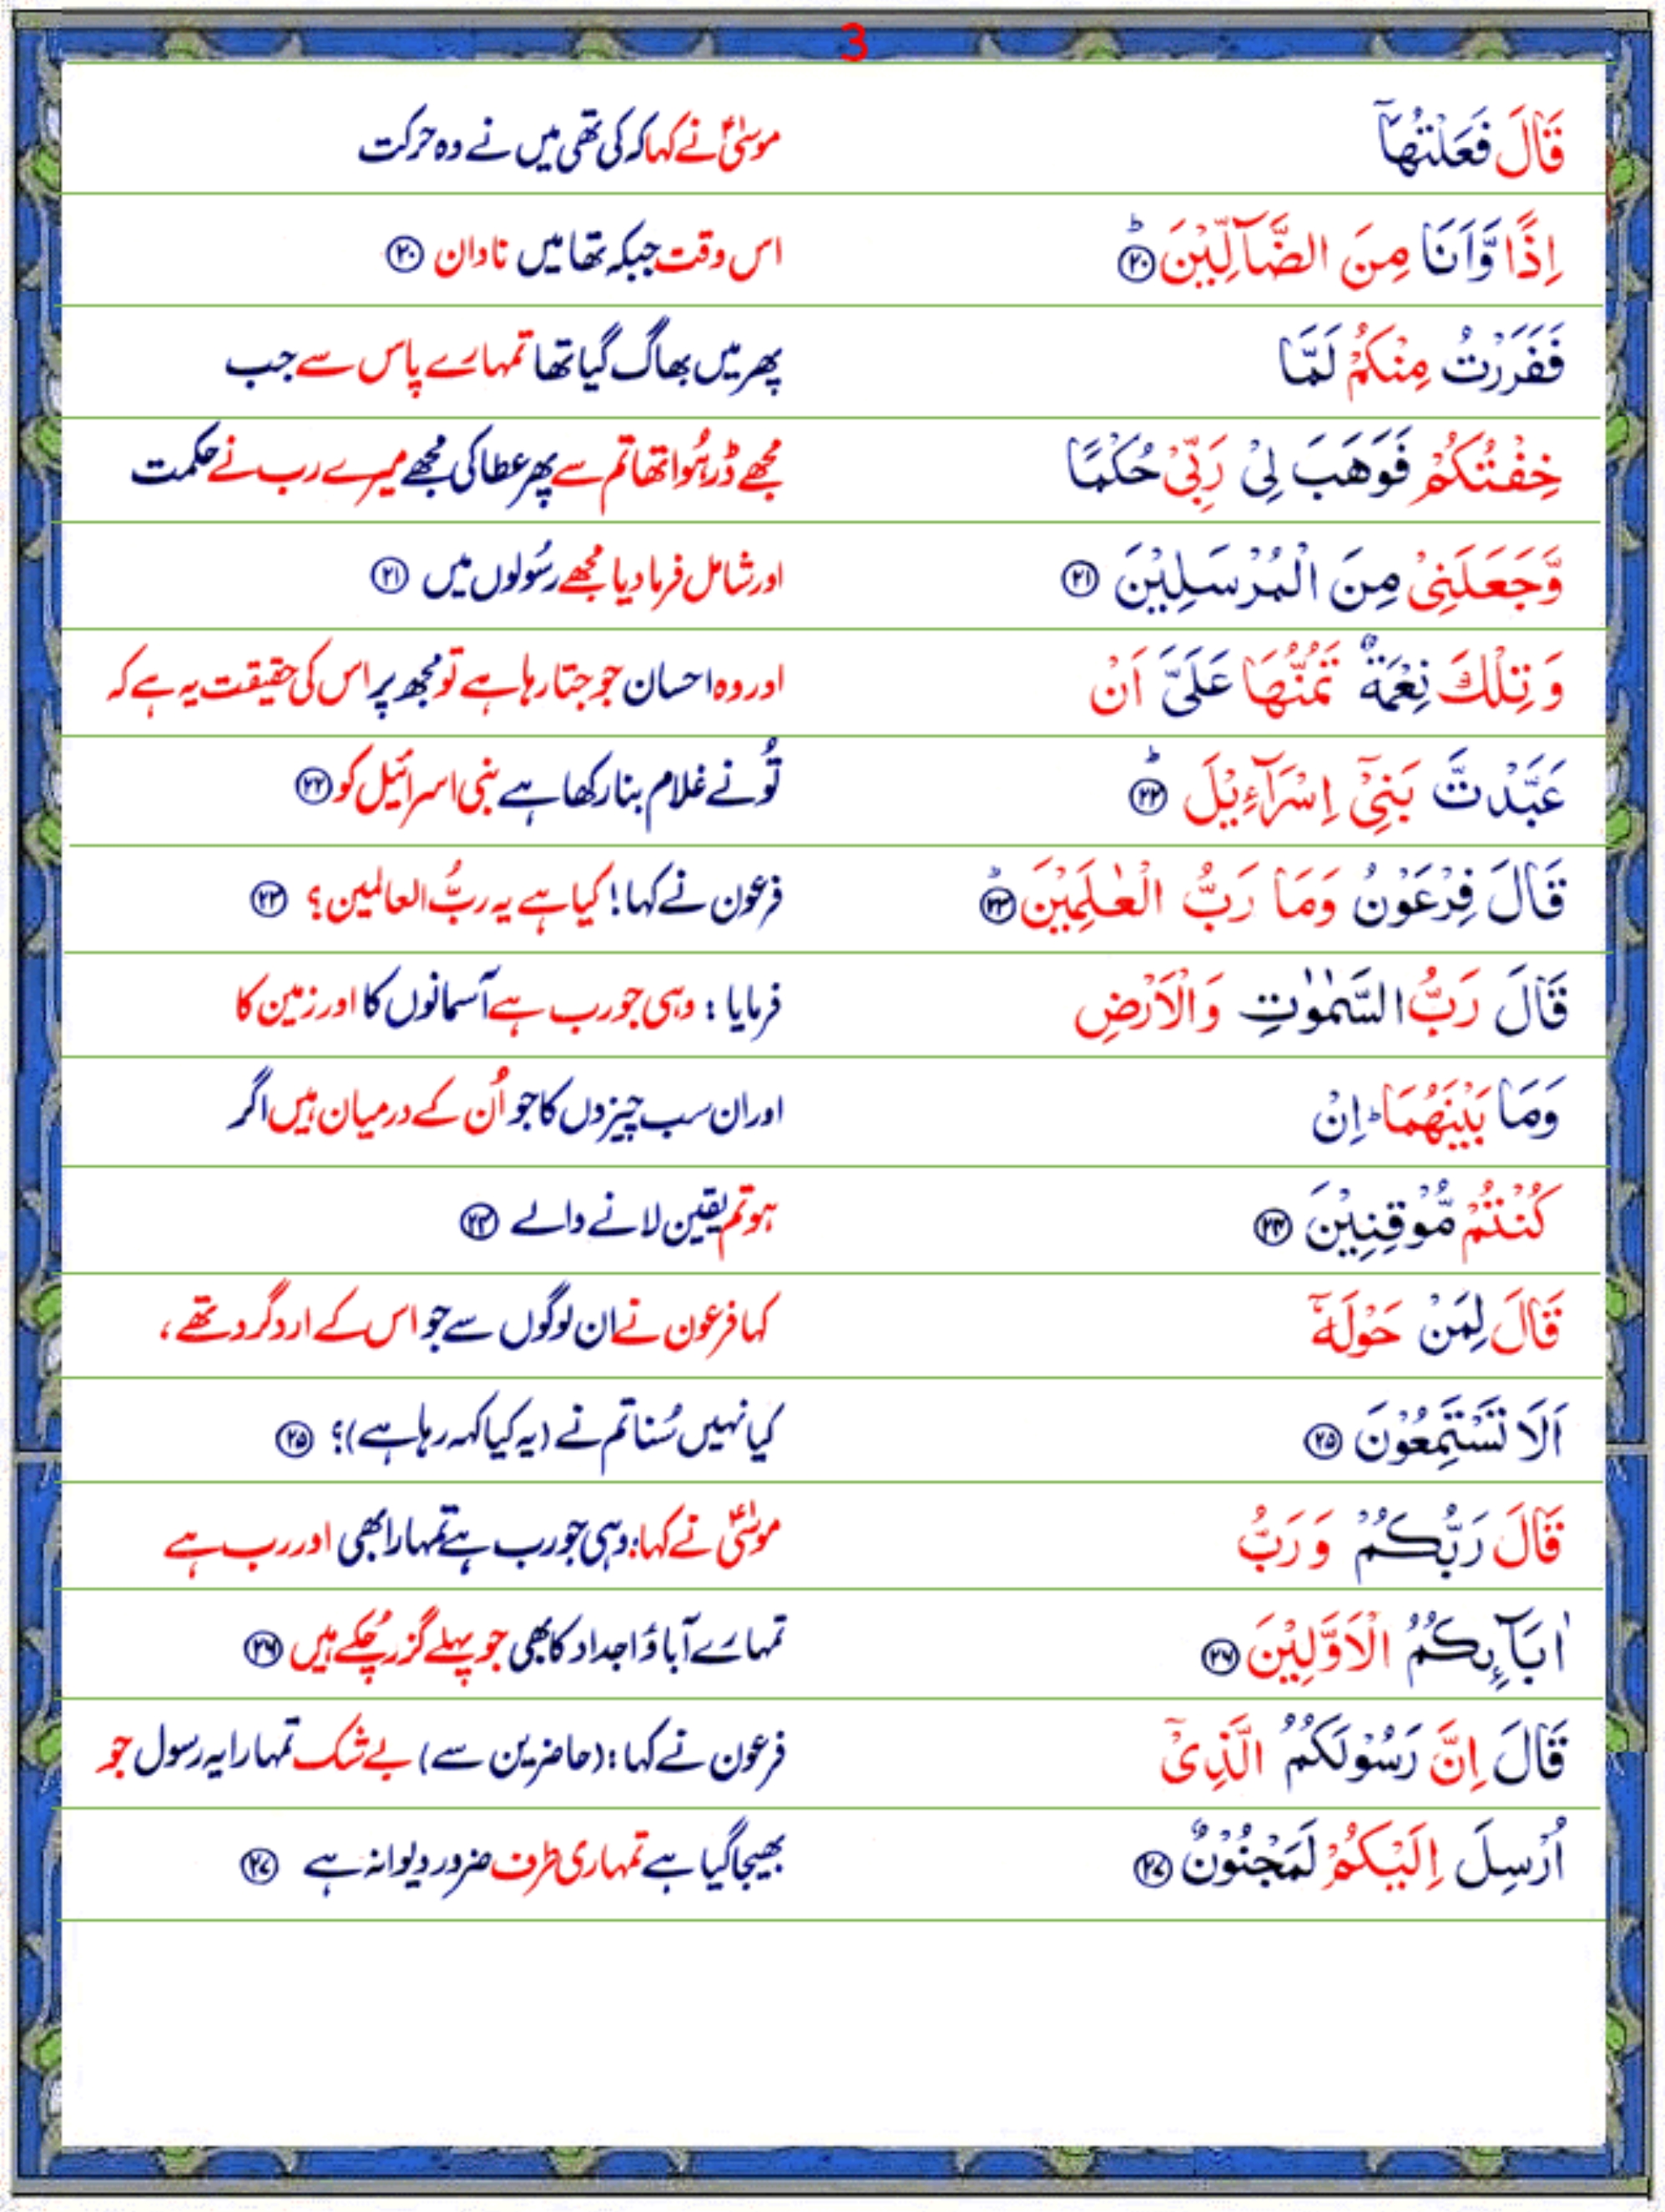 3
قَالَ فَعَلْتُهَاۤ موسٰیؑ نے کہا کہ کی تھی میں نے وہ حرکت
اِذًا وَّاَنَا مِنَ الضَّآلِّيْنَؕ ﴿۲۰﴾ اس وقت جبکہ تھا میں نادان ﴿۲۰﴾
فَفَرَرْتُ مِنْكُمْ لَمَّا پھر میں بھاگ گیا تھا تمہارے پاس سے جب
خِفْتُكُمْ فَوَهَبَ لِيْ رَبِّيْ حُكْمًا مجھے ڈر ہُوا تھا تم سے پھر عطا کی مجھے میرے رب نے حکمت
وَّجَعَلَنِيْ مِنَ الْمُرْسَلِيْنَ ﴿۲۱﴾ اور شامل فرما دیا مجھے رسُولوں میں ﴿۲۱﴾
وَتِلْكَ نِعْمَةٌ تَمُنُّهَا عَلَيَّ اَنْ اور وہ احسان جو جتا رہا ہے تو مجھ پر اس کی حقیقت یہ ہے کہ
عَبَّدْتَّ بَنِيْۤ اِسْرَآءِيْلَؕ ﴿۲۲﴾ تُو نے غلام بنا رکھا ہے بنی اسرائیل کو ﴿۲۲﴾
قَالَ فِرْعَوْنُ وَمَا رَبُّ الْعٰلَمِيْنَؕ ﴿۲۳﴾ فرعون نے کہا! کیا ہے یہ ربُّ العالمین؟ ﴿۲۳﴾
قَالَ رَبُّ السَّمٰوٰتِ وَالْاَرْضِ فرمایا : وہی جو رب ہے آسمانوں کا اور زمین کا
وَمَا بَيْنَهُمَاؕ اِنْ اور ان سب چیزوں کا جو اُن کے درمیان ہیں اگر
كُنْتُمْ مُّوْقِنِيْنَ ﴿۲۴﴾ ہو تم یقین لانے والے ﴿۲۴﴾
قَالَ لِمَنْ حَوْلَهٗۤ کہا فرعون نے ان لوگوں سے جو اس کے ارد گرد تھے،
اَلَا تَسْتَمِعُوْنَ ﴿۲۵﴾ کیا نہیں سُنا تم نے (یہ کیا کہہ رہا ہے)؟ ﴿۲۵﴾
قَالَ رَبُّكُمْ وَرَبُّ موسٰیؑ نے کہا: وہی جو رب ہے تمہارا بھی اور رب ہے
اٰبَآىِٕكُمُ الْاَوَّلِيْنَ ﴿۲۶﴾ تمہارے آباؤ اجداد کا بھی جو پہلے گزر چُکے ہیں ﴿۲۶﴾
قَالَ اِنَّ رَسُوْلَكُمُ الَّذِيْۤ فرعون نے کہا : (حاضرین سے) بے شک تمہارا یہ رسول جو
اُرْسِلَ اِلَيْكُمْ لَمَجْنُوْنٌ ﴿۲۷﴾ بھیجا گیا ہے تمہاری طرف ضرور دیوانہ ہے ﴿۲۷﴾